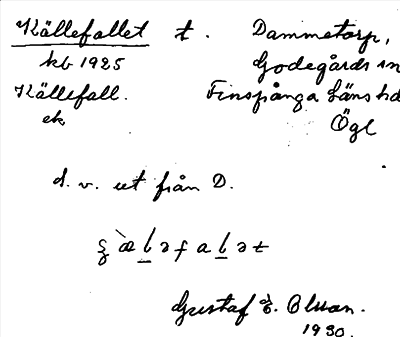 Källefallet t. Dammetorp,
kb 1925 Godegårds sn
Källefall. Finspånga läns hd
ek Ögl
d. v. ut från D.
Gustaf E.
1930.